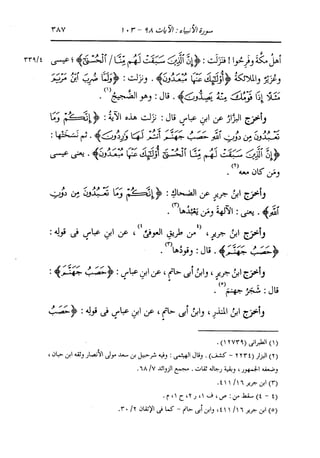 سورة الأنبياء : الآيات ٩٨ - ١٠٣
٣٨٧
أهل مكة وفرحوا ! فنزلت : ﴿إن الذين سبقت لهم منا الحسنى﴾ ؛ عيسى
٣٣٩/٤
وعزير والملائكة ﴿أولئك عنها مبعدون﴾ . ونزلت : ﴿ولما ضرب ابن مريم
مثلا إذا قومك منه يصدون﴾ . قال : وهو الضجيج(١) .
وأخرج البزار عن ابن عباس قال : نزلت هذه الآية : ﴿إنكم وما
تعبدون من دون الله حصب جهنم أنتم لها واردون﴾ . ثم نسختها :
﴿إن الذين سبقت لهم منا الحسنى أولئك عنها مبعدون﴾ . يعنى عيسى
ومن كان معه(٢) .
وأخرج ابن جرير عن الضحاك : ﴿إنكم وما تعبدون من دون
الله﴾ . يعنى : الآلهة ومن يعبدها(٣) .
وأخرج ابن جرير ، (٤من طريق العوفى٤) ، عن ابن عباس فى قوله :
﴿حصب جهنم﴾ . قال : وقودها(٣) .
وأخرج ابن جرير ، وابن أبى حاتم ، عن ابن عباس : ﴿حصب جهنم﴾ :
قال : شجر جهنم(٥) .
وأخرج ابن المنذر ، وابن أبى حاتم ، عن ابن عباس فى قوله : ﴿حصب
(١) الطبرانى (١٢٧٣٩) .
(٢) البزار (٢٢٣٤ - كشف) . وقال الهيثمى : وفيه شرحبيل بن سعد مولى الأنصار وثقه ابن حبان ،
وضعفه الجمهور ، وبقية رجاله ثقات . مجمع الزوائد ٦٨/٧ .
(٣) ابن جرير ٤١١/١٦ .
(٤ - ٤) سقط من : ص ، ف ١ ، ر ٢ ، ح ١ ، م .
(٥) ابن جرير ٤١١/١٦ ، وابن أبى حاتم - كما فى الإتقان ٣٠/٢ .